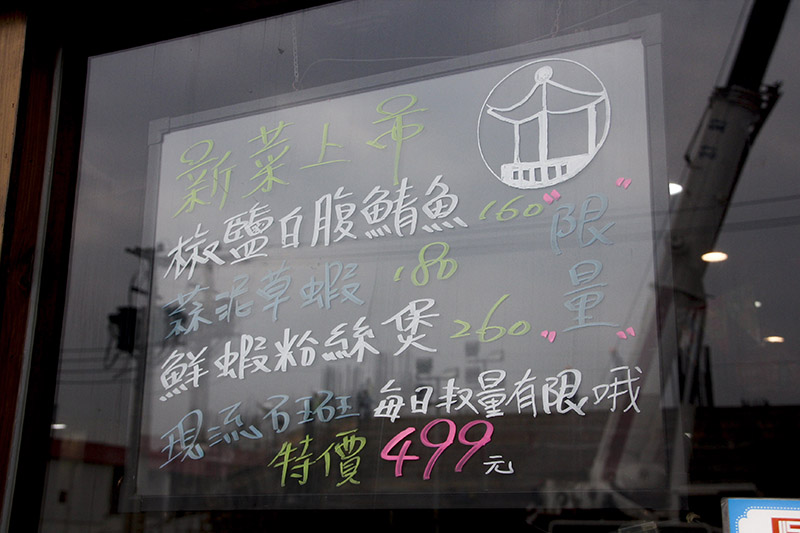 新菜上市
椒鹽白腹鯖魚 160
蒜泥草蝦 180
鮮蝦粉絲煲 260
"限量"
現流石班 每日数量有限哦
特價499元